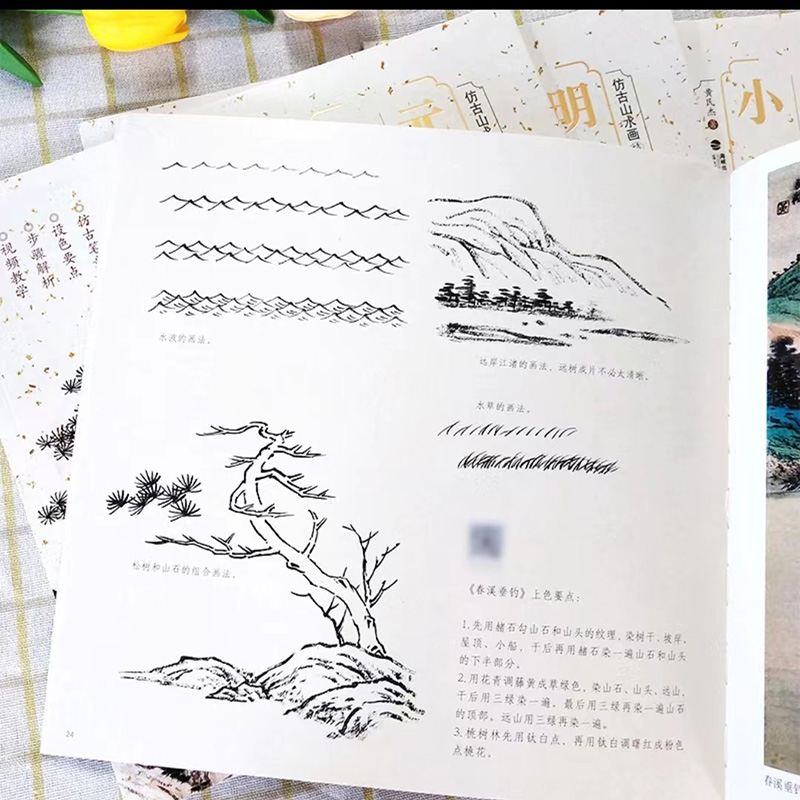 元
仿古山水
明
仿古山水画
小
黄民杰 著
仿古
设色要点
步骤解析
视频教学
水波的画法。
远岸江渚的画法，远树成片不必太清晰。
水草的画法。
松树和山石的组合画法。
《春溪垂钓》上色要点：
1.先用赭石勾山石和山头的纹理，染树干、坡岸、
屋顶、小船，干后再用赭石染一遍山石和山头
的下半部分。
2.用花青调藤黄成草绿色，染山石、山头、远山，
干后用三绿染一遍。最后用三绿再染一遍山石
的顶部，远山用三绿再染一遍。
3.桃树林先用钛白点，再用钛白调曙红成粉色
点桃花。
24
春溪垂钓